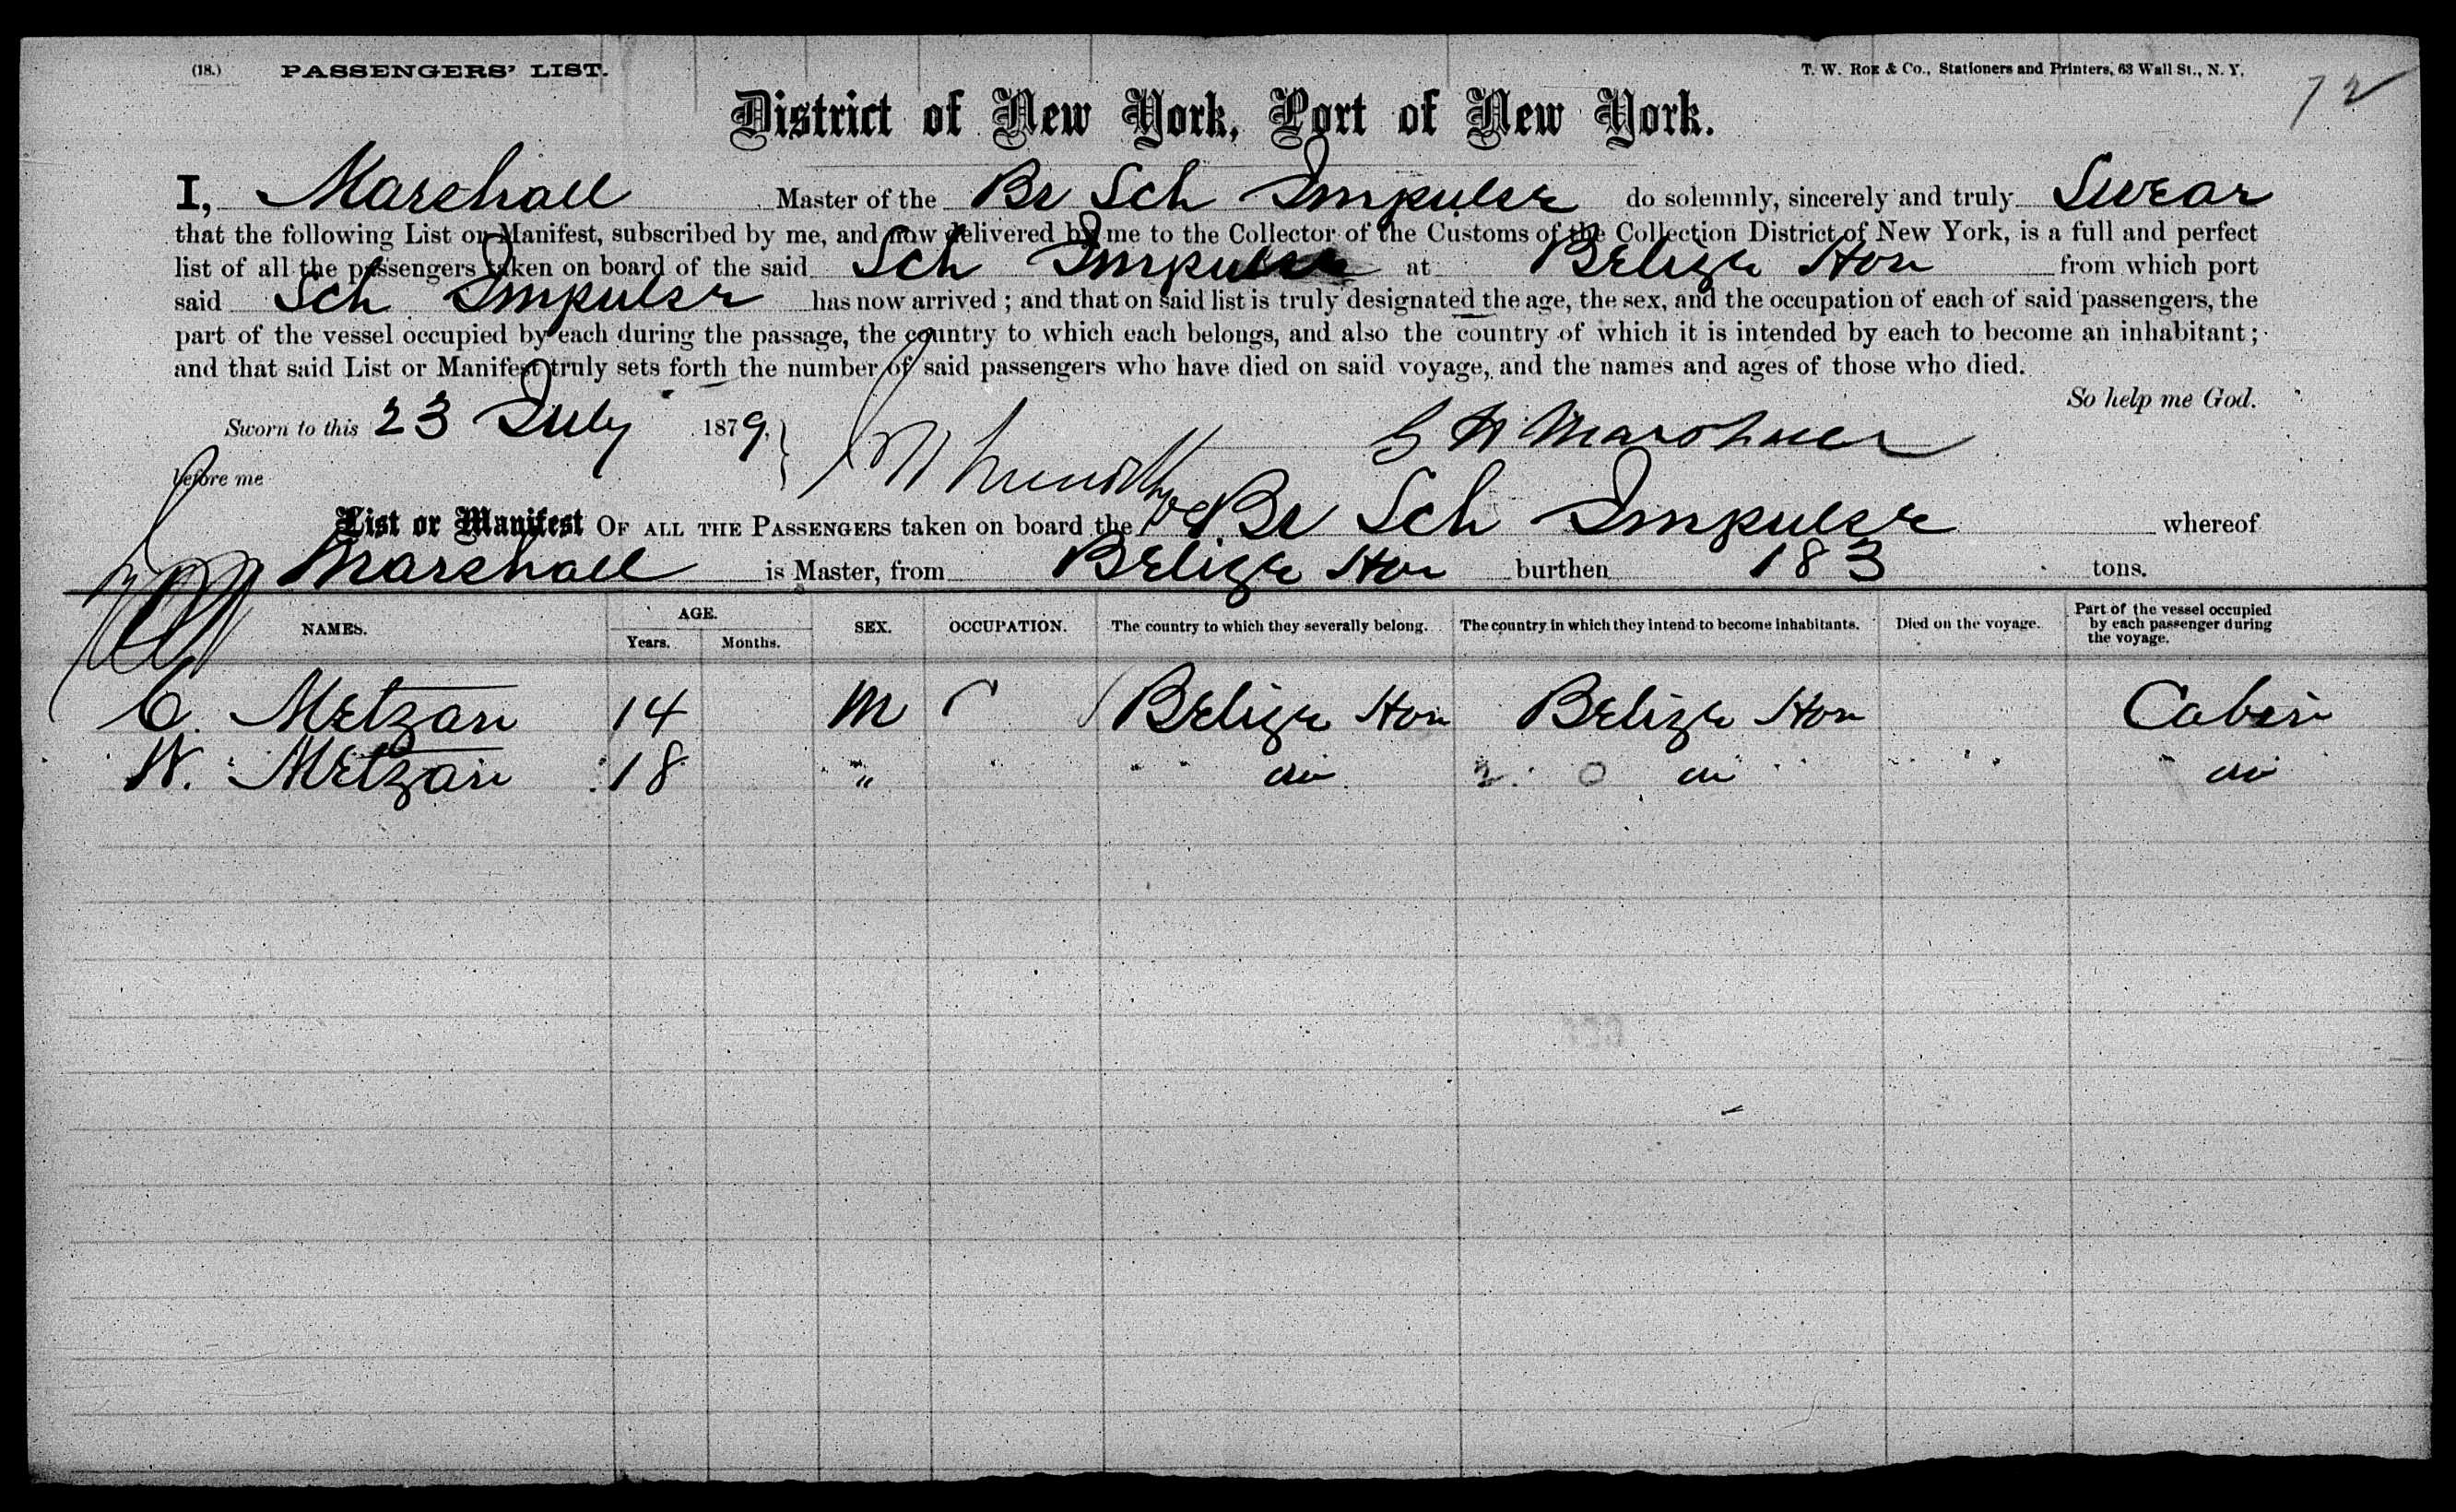 (18.) PASSENGERS' LIST. T. W. Roe & Co., Stationers and Printers, 63 Wall St., N. Y. 72
District of New York, Port of New York.
I, Marshall Master of the Br Sch Impulse do solemnly, sincerely and truly Swear
that the following List or Manifest, subscribed by me, and now delivered by me to the Collector of the Customs of the Collection District of New York, is a full and perfect
list of all the passengers taken on board of the said Sch Impulse at Belize Hon from which port
said Sch Impulse has now arrived; and that on said list is truly designated the age, the sex, and the occupation of each of said passengers, the
part of the vessel occupied by each during the passage, the country to which each belongs, and also the country of which it is intended by each to become an inhabitant;
and that said List or Manifest truly sets forth the number of said passengers who have died on said voyage, and the names and ages of those who died.
So help me God.
Sworn to this 23 July 1879,
before me
List or Manifest OF ALL THE PASSENGERS taken on board the Br Sch Impulse whereof
Marshall is Master, from Belize Hon burthen 183 tons.
NAMES. AGE. Years. Months. SEX. OCCUPATION. The country to which they severally belong. The country in which they intend to become inhabitants. Died on the voyage. Part of the vessel occupied by each passenger during the voyage.
C. Metzan 14 M Belize Hon Belize Hon Cabin
W. Metzan 18 " do do do